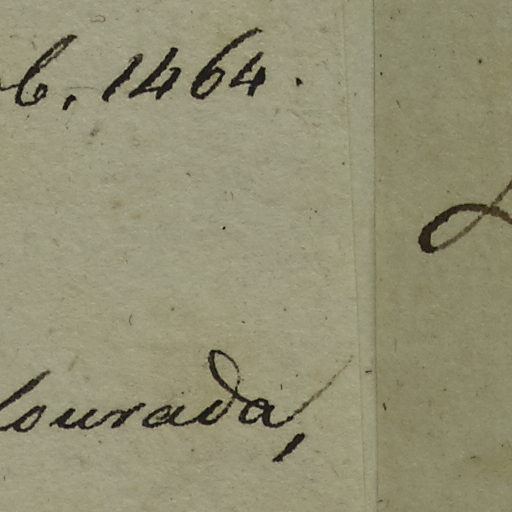 b. 1464.
lourada,